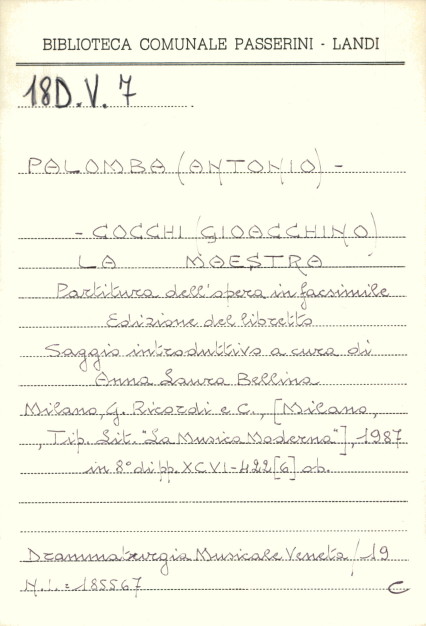 BIBLIOTECA COMUNALE PASSERINI - LANDI
18D.V.7
PALOMBA (ANTONIO) -
- COCCHI (GIOACCHINO)
LA MAESTRA
Partitura dell'opera in facsimile
Edizione del libretto
Saggio introduttivo a cura di
Anna Laura Bellina
Milano, G. Ricordi e C., [Milano,
, Tip. Lit. "La Musica Moderna"], 1987
in 8° di pp. XCVI-422 [6] ob.
Drammaturgia Musicale Veneta / 19
N.i.: 185567
C